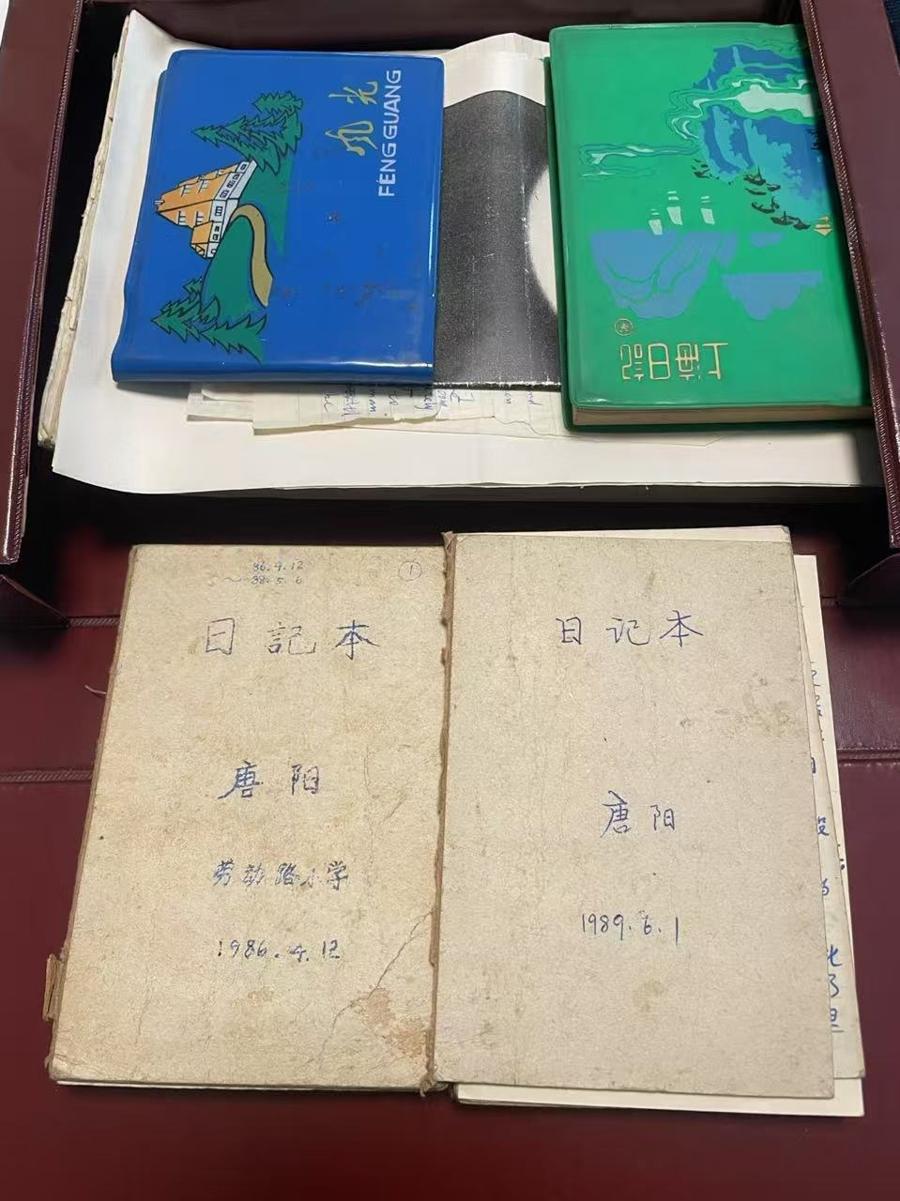 风光
FENGGUANG
上海日记
86.4.12
～88.5.6
①
日記本
唐阳
劳动路小学
1986.4.12
日记本
唐阳
1989.6.1